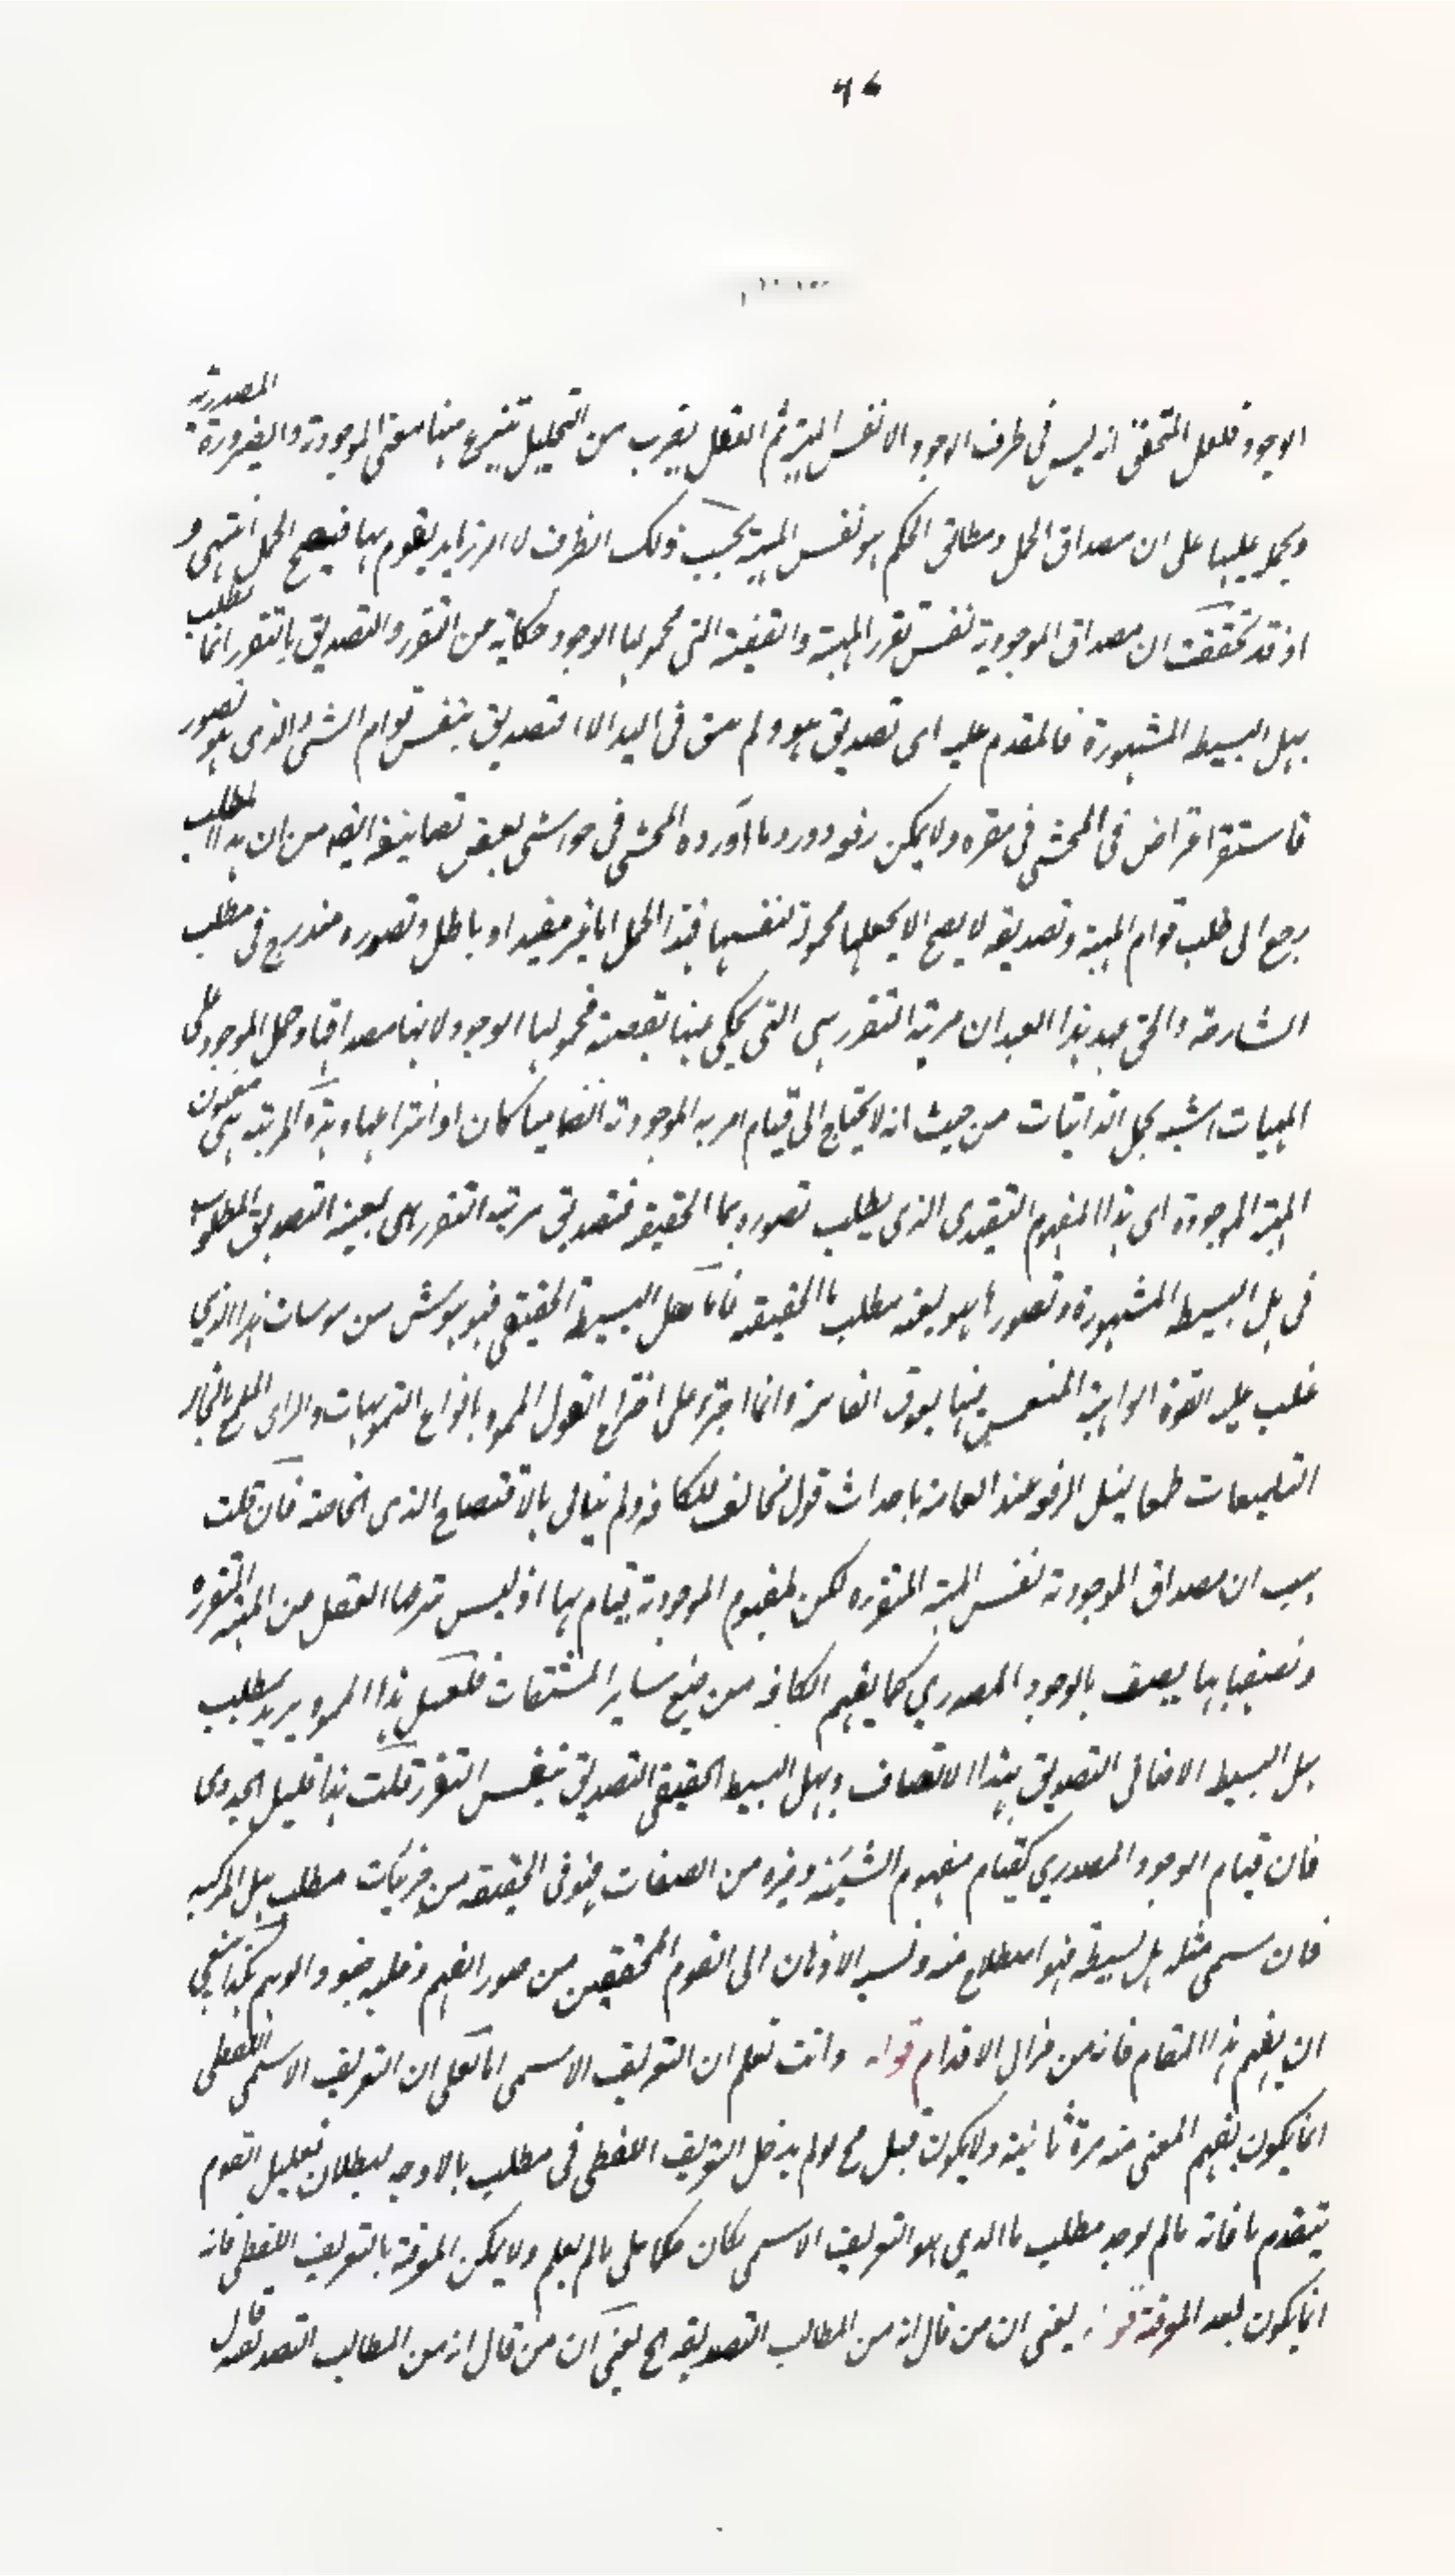 ٩٤
الوجود فلعل المتحقق انه ليس في ظرف الوجود الا نفس المهية ثم العقل بضرب من التحليل ينتزع منها معنى الموجودية والصيرورة المصدرية
ويحمله عليها على ان مصداق الحمل ومطابق الحكم هو نفس المهية بحسب ذلك الظرف لا امر زايد يقوم بها فيصح الحمل انتهى و
اذ قد تحققت ان مصداق الموجودية نفس تقرر المهية والقضية التي محمولها الوجود حكاية من التقرر والتصديق بالتقرر انما مطلب
بهل البسيط المشهورة فالمقدم عليه اى تصديق هو ولم يبق فى اليد الا التصديق بنفس قوام الشئ الذى هو تصور
فاستقر اعتراض المحشي في مقره ولا يمكن رفعه ورد ما اورده المحشي في حواشى بعض تصانيفه ايضا من ان هذا المطلب
رجع الى طلب قوام المهية وتصديقه لا يصح الا بجعلها محمولة لنفسها فهذا الحمل اما غير مفيد او باطل وتصوره مندرج فى مطلب
الشارحة والحق بعد هذا العبد ان مرتبة التقرر هى التي يحكى عنها بقضية محمولها الوجود لانها مصداقها وحمل الموجود على
المهيات يشبه حمل الذاتيات من حيث انه لا يحتاج الى قيام امر به الموجودية انضماميا كان او انتزاعيا وهذه المرتبة هى مضمون
المهية الموجودة اى هذا المفهوم التقيدى الذى يطلب تصوره بما الحقيقة فتصديق مرتبة التقرر هى بعينه التصديق المطلوب
فى هل البسيط المشهورة وتصورها هو بعينه مطلب ما الحقيقة فاما هل البسيطة الحقيقي فهو هوس من هوسات هذا الذي
غلب عليه القوة الواهية وانما اجترء على اختراع القول المموه بانواع التمويهات والراى
التلميعات طمعا لنيل الرفعة عند العامة باحداث قول مخالف للكافة ولم يبال بالافتضاح الذى الخاصة فان قلت
هب ان مصداق الموجودية نفس المهية المتقررة لكن لمفهوم الموجودية قيام بها اذ ليس ينتزعها العقل من المهية المتقررة
ويصفها بها يصف بالوجود المصدري كما يفهم الكافة من صيغ ساير المشتقات فلعل هذا المموه يريد بمطلب
هل البسيط الاضافى التصديق بهذا الاتصاف وبهل البسيط الحقيقي التصديق بنفس التقرر قلت هذا قليل الجدوى
فان قيام الوجود المصدري كقيام مفهوم الشيئية وغيره من الصفات فهو فى الحقيقة من جزئيات مطلب هل المركبة
فان سمى مثله هل بسيطة فهو اصطلاح منه ونسبة الاذعان الى القوم المحققين من صور الفهم وغلبة جنود الوهم هكذا ينبغى
ان يفهم هذا المقام فانه من مزال الاقدام قوله وانت تعلم ان التعريف الاسمى الخ اعلم ان التعريف الاسمى اللفظى
انما يكون بفهم المعنى منه مرة ثانية ولا يكون قبل مح لو لم يدخل التعريف اللفظى فى مطلب بالاوجه لبطلان تعليل القوم
بتقدم ما فانه ما لم يوجد مطلب ما الذي هو التعريف الاسمى كان حكما على ما لم يعلم ولا يمكن المعرفة بالتعريف اللفظى فانه
انما يكون بعد المعرفة قوله يعنى ان من قال انه من المطالب التصديقية الخ يعنى ان من قال انه من المطالب التصديقية قال